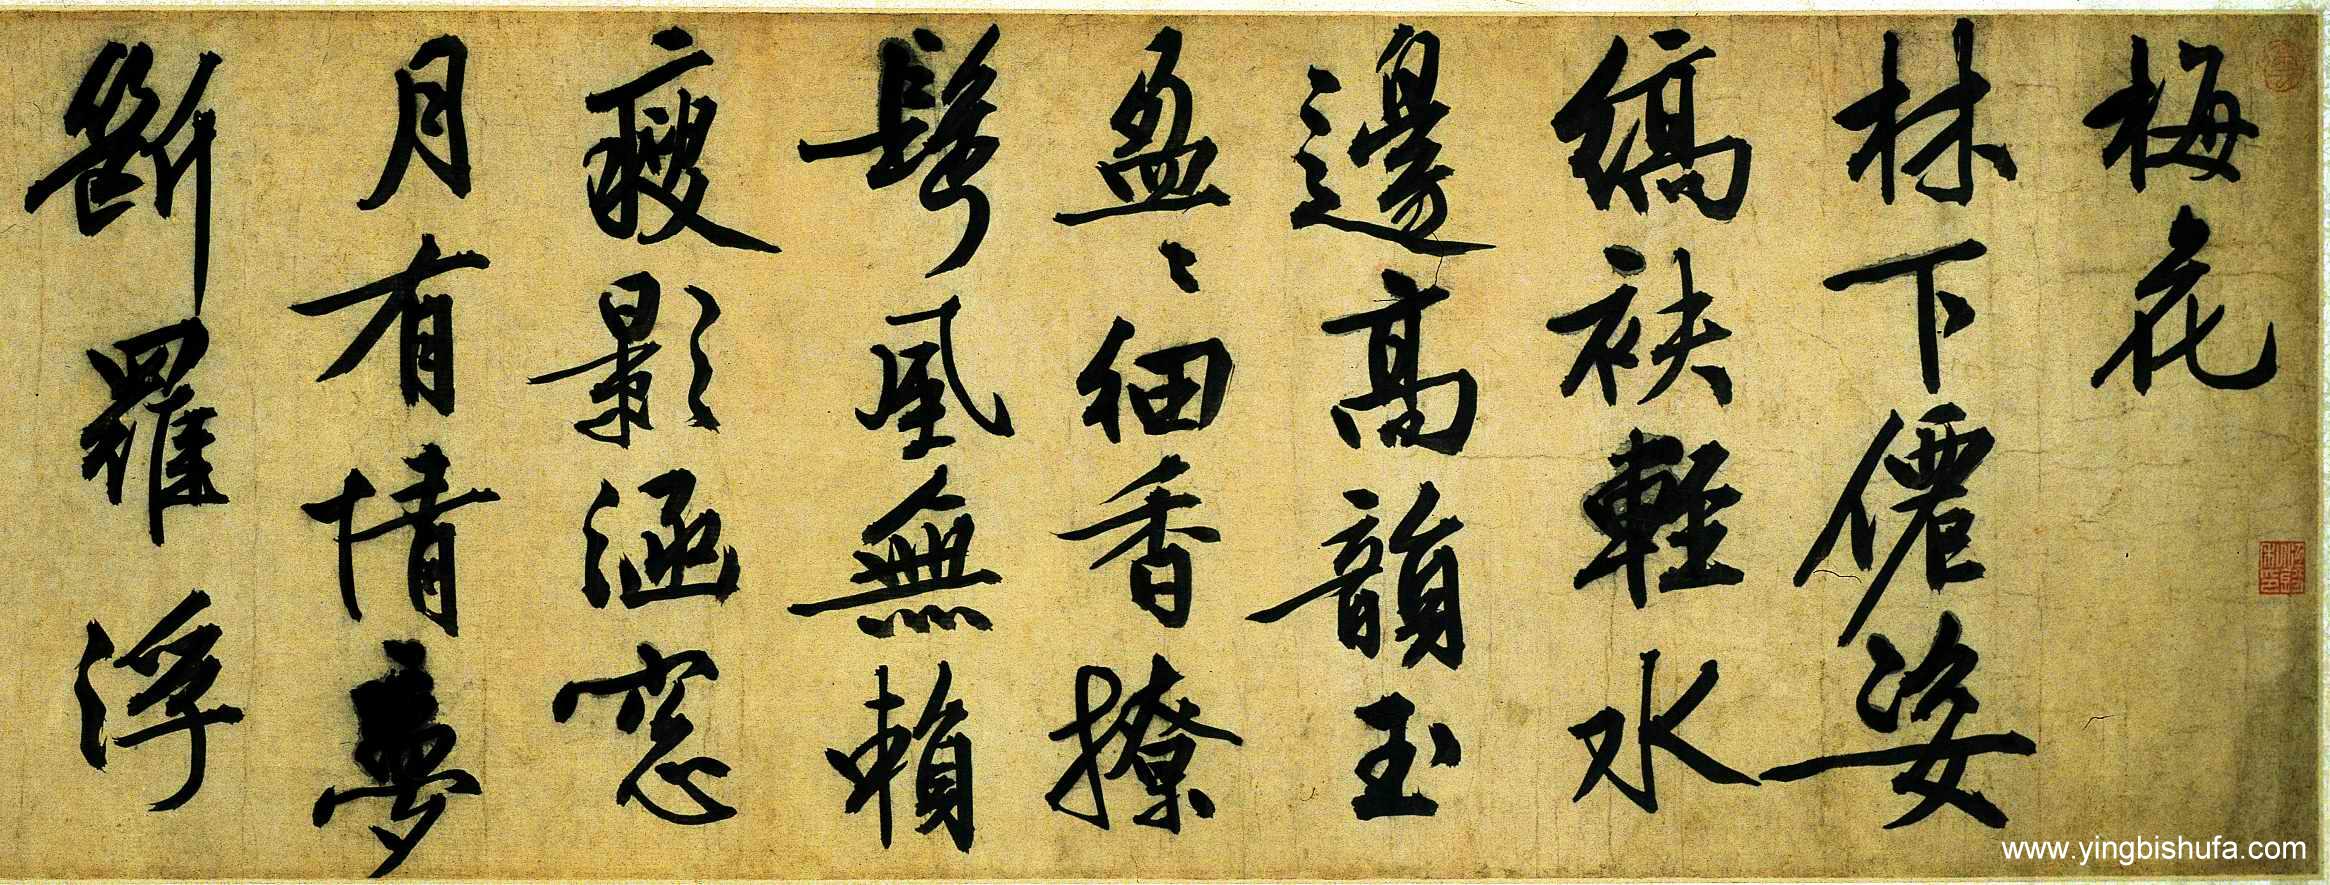 梅花
林下僊姿
縞袂輕水
邊高韻玉
盈〻細香撩
鬓風無賴
瘦影涵窓
月有情夢
斷羅浮
www.yingbishufa.com